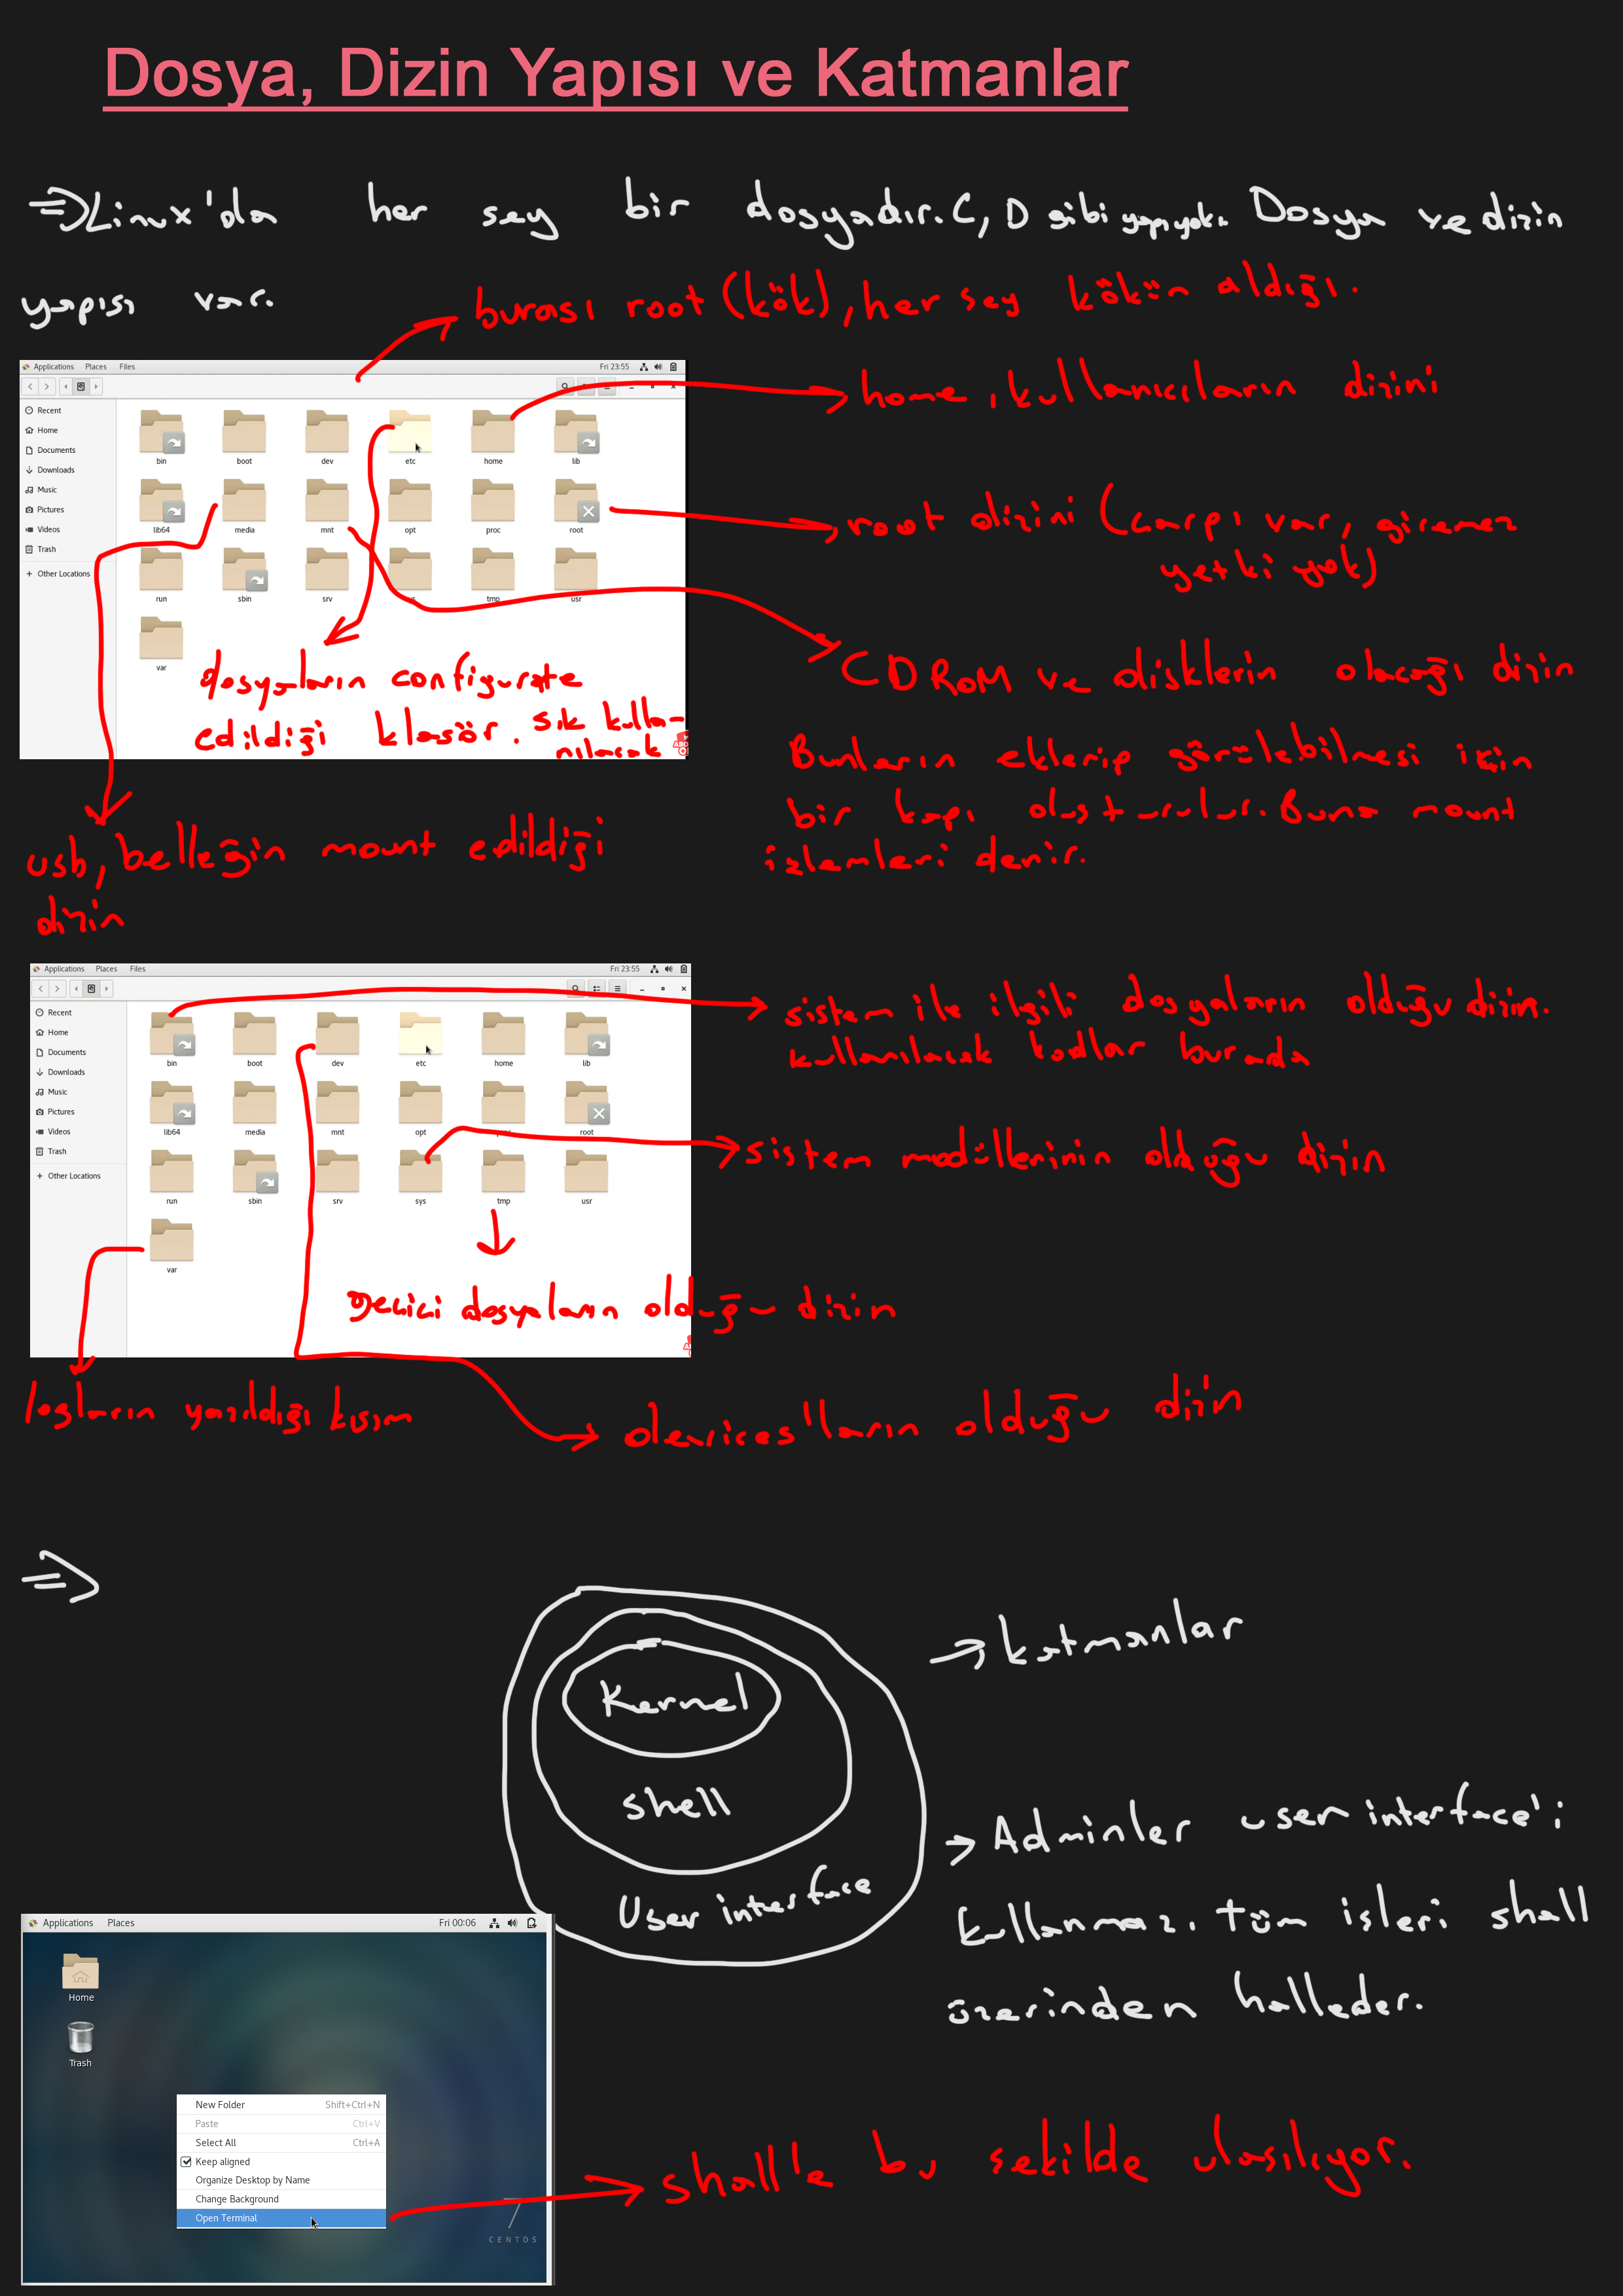 Dosya, Dizin Yapısı ve Katmanlar
=> Linux'da her sey bir dosyadır. C, D gibi yapı yok. Dosya ve dizin
yapısı var.
burası root (kök), her sey kökün aldığı.
Applications Places Files Fri 23:55
home, kullanıcıların dizini
Recent
Home
Documents
Downloads
Music
Pictures
Videos
Trash
+ Other Locations
bin boot dev etc home lib
lib64 media mnt opt proc root
run sbin srv tmp usr
var
root dizini (çarpı var, giremez
yetki yok)
dosyaların configurate
edildiği klasör. sık kulla-
nılacak
CDROM ve disklerin olacağı dizin
Bunların eklenip görülebilmesi için
bir kapı olusturulur. Buna mount
islemleri denir.
usb, belleğin mount edildiği
dizin
Applications Places Files Fri 23:55
Recent
Home
Documents
Downloads
Music
Pictures
Videos
Trash
+ Other Locations
bin boot dev etc home lib
lib64 media mnt opt root
run sbin srv sys tmp usr
var
sistem ile ilgili dosyaların olduğu dizin.
kullanılacak kodlar burada
sistem modüllerinin olduğu dizin
gecici dosyaların olduğu dizin
logların yazıldığı kısım
devices'ların olduğu dizin
=>
Kernel
shell
User interface
→ katmanlar
→ Adminler user interface'i
kullanmaz. tüm isleri shall
üzerinden halleder.
Applications Places Fri 00:06
Home
Trash
New Folder Shift+Ctrl+N
Paste Ctrl+V
Select All Ctrl+A
Keep aligned
Organize Desktop by Name
Change Background
Open Terminal
7
CENTOS
shall'e bu sekilde ulasılıyor.